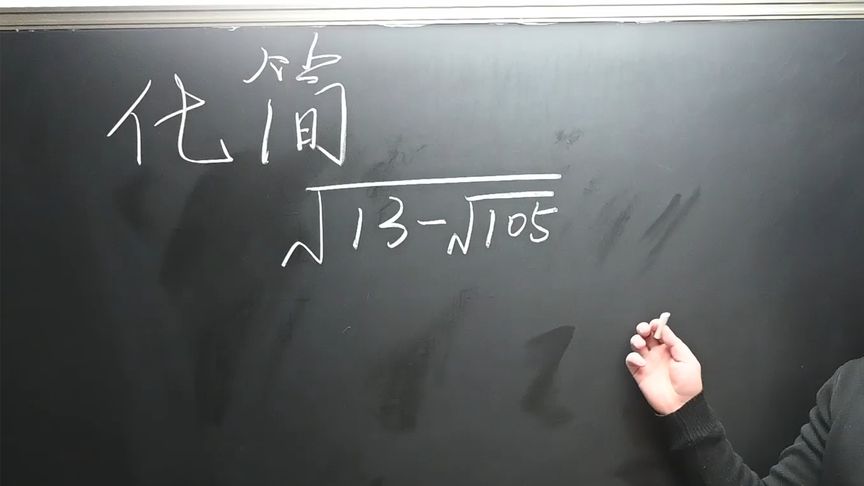 化简
√(13-√105)